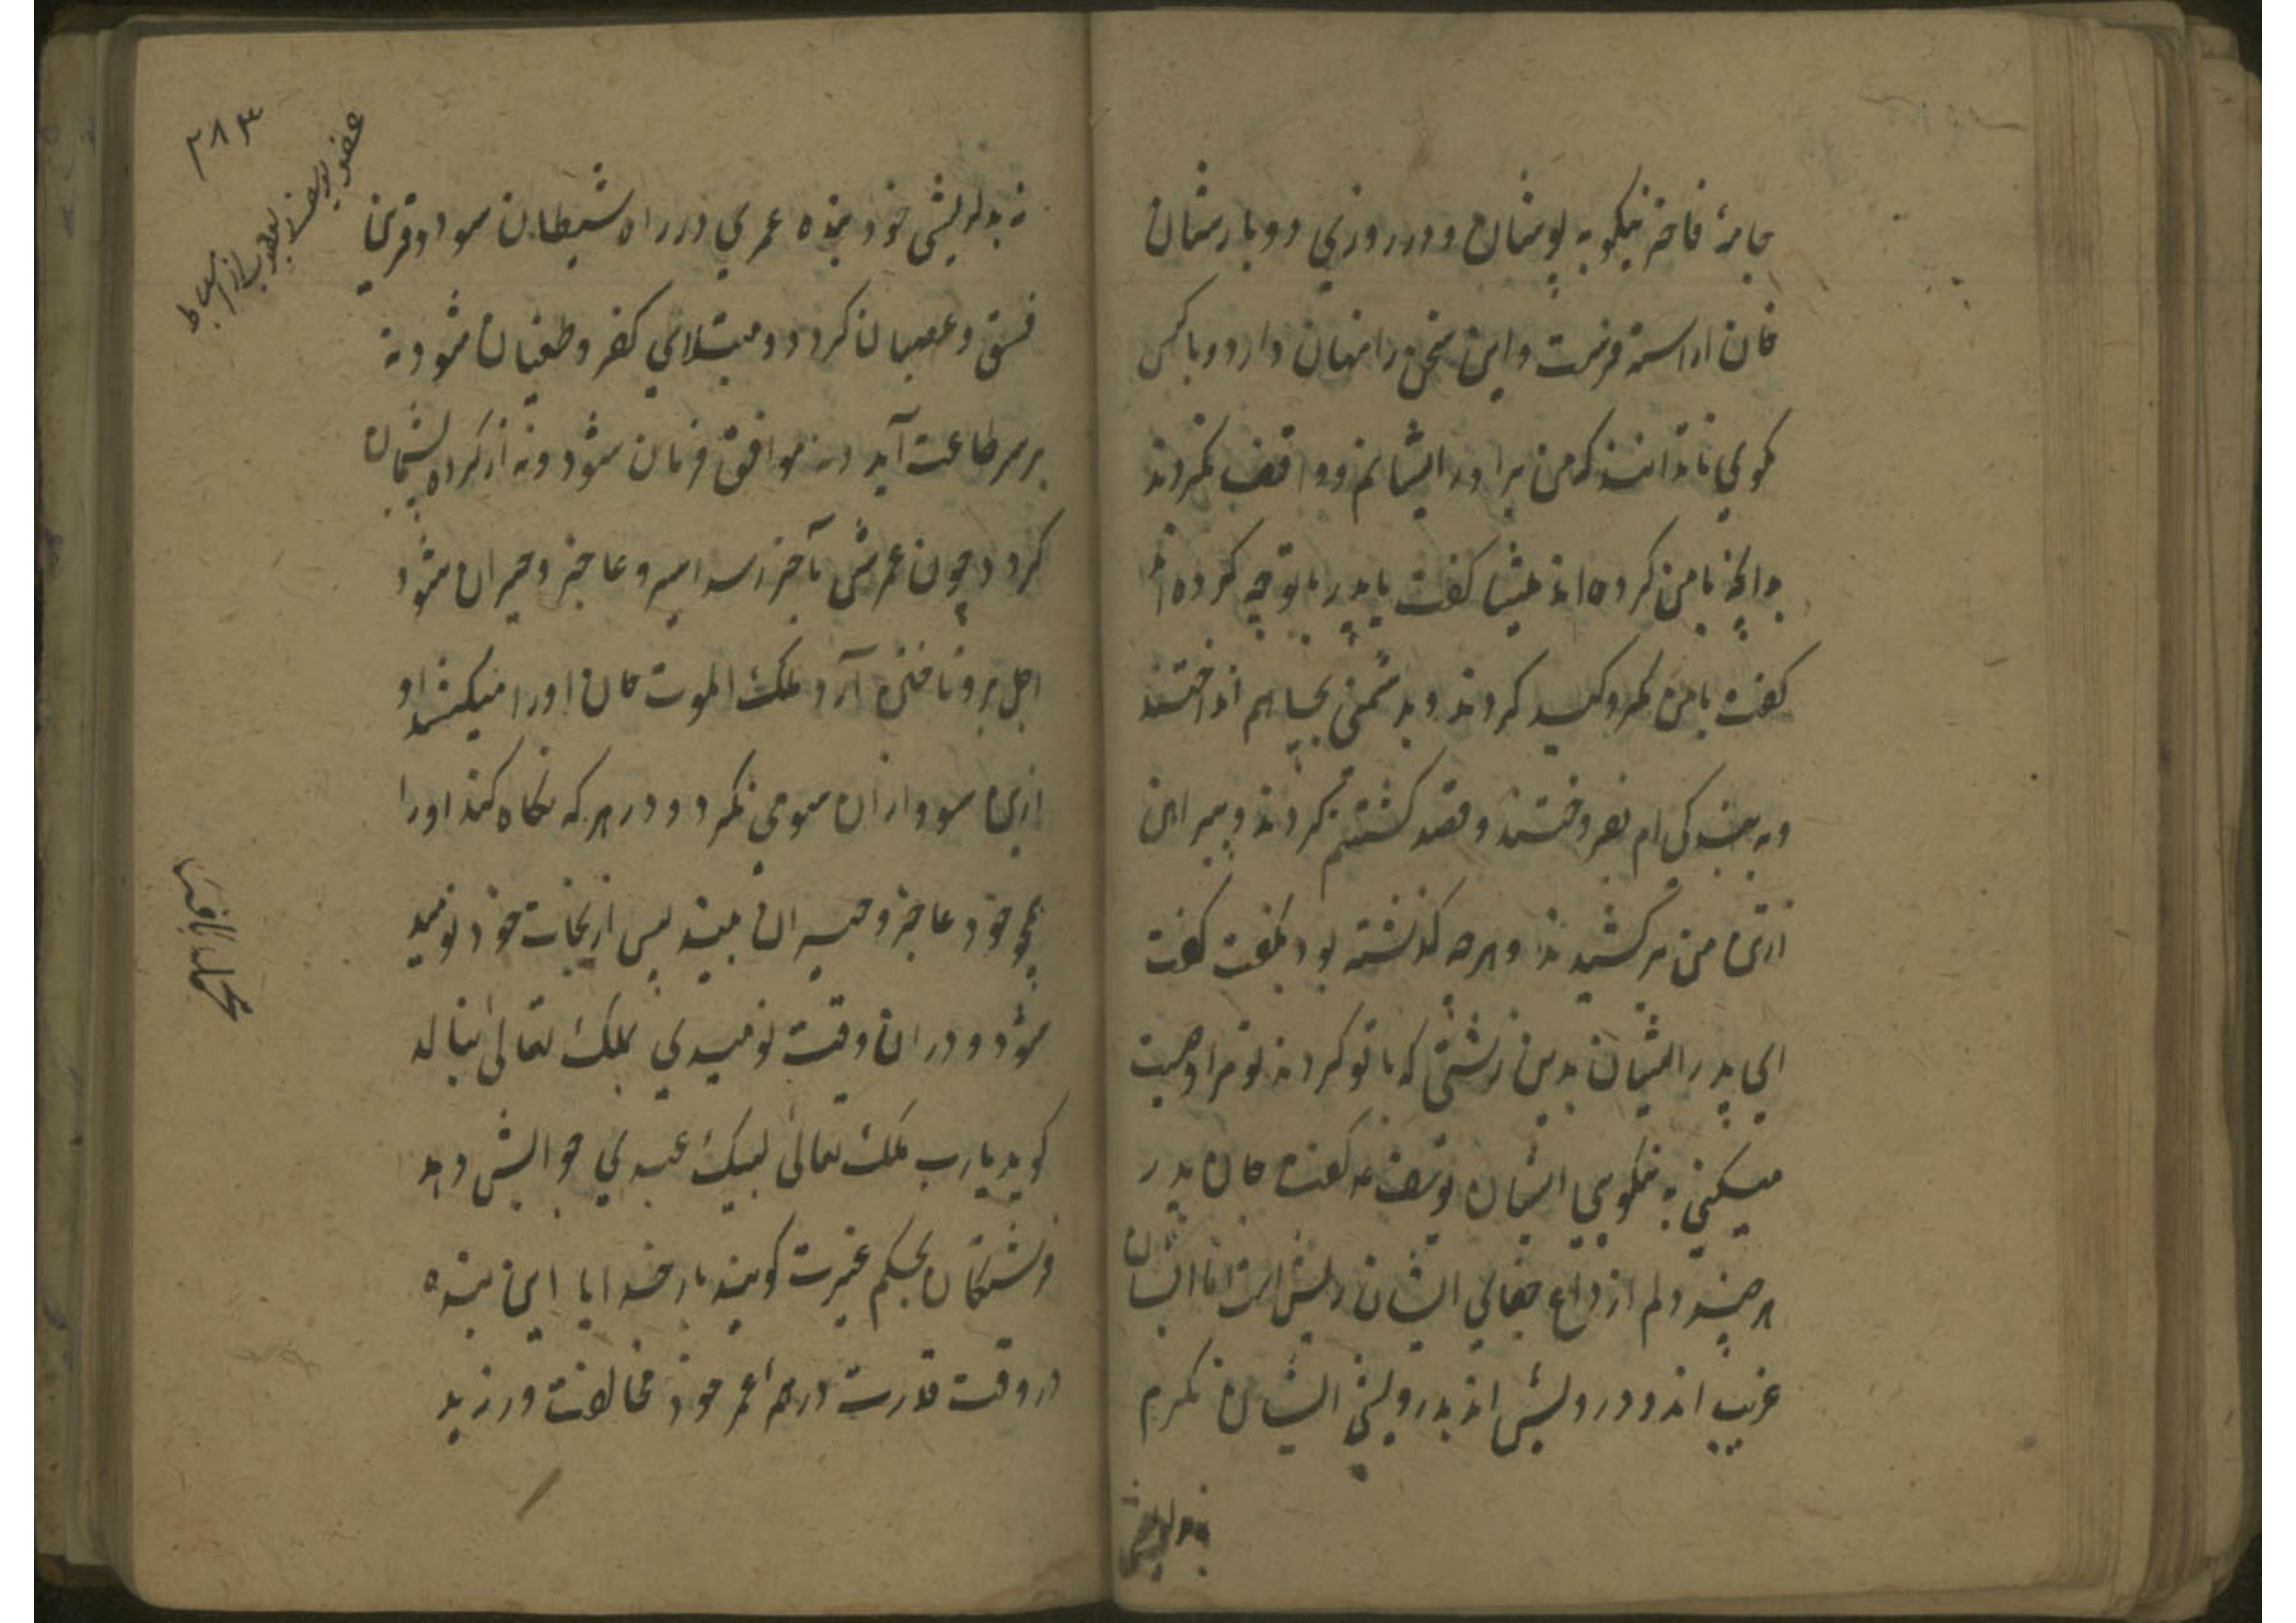 جامهٔ فاخر نیکو به پوشان و در روزی دو بار شان
خان اراسته فرست و این سخن را نهان دار و با کس
نکوی تا ندانند که من برادر ایشانم و واقف نکردند
بدانچه با من کرده اند میشا کفت یا پدر با تو چه کرده اند
کفت با من مکر و کید کردند و بدشمنی بچاهم انداختند
و به بندکی ام بفروختند و قصد کشتنم کردند و پیراهن
ازتن من برکشیدند و هرچه کذشته بود بکفت کفت
ای پدر ایشان بدین زشتی که با تو کردند تو مرا وصیت
میکنی به نکویی ایشان یوسف ع کفت جان پدر
هرچند دلم از داغ جفای ایشان ریش است اما ایشان
غریب اند و درویش اند بدرویشی ایشان نکرم
نه بدلریشی
۲۸۳
عفو یوسف یعقوب از اسباط
نه بدلریشی خود بنده عمری در راه شیطان سود و قرین
فسق و عصیان کردد و مبتلای کفر و طغیان شود نه
برسر طاعت آید و نه موافق فرمان شود و نه از کرده پشیمان
کردد چون عمرش بآخر رسد اسیر و عاجز و حیران شود
اجل برو تاختن آرد ملک الموت جان او را میکشد او
ازین سو و ازان سو می نکرد و در هر که نکاه کند او را
همچو خود عاجز و حیران بیند پس از نجات خود نومید
شود و در ان وقت نومیدی بملک تعالی بنالد
کوید یارب ملک تعالی لبیک عبدی جوابش دهد
فرشتکان بحکم غیرت کویند بار خدایا این بنده
در وقت قدرت در همه عمر خود مخالفت ورزید